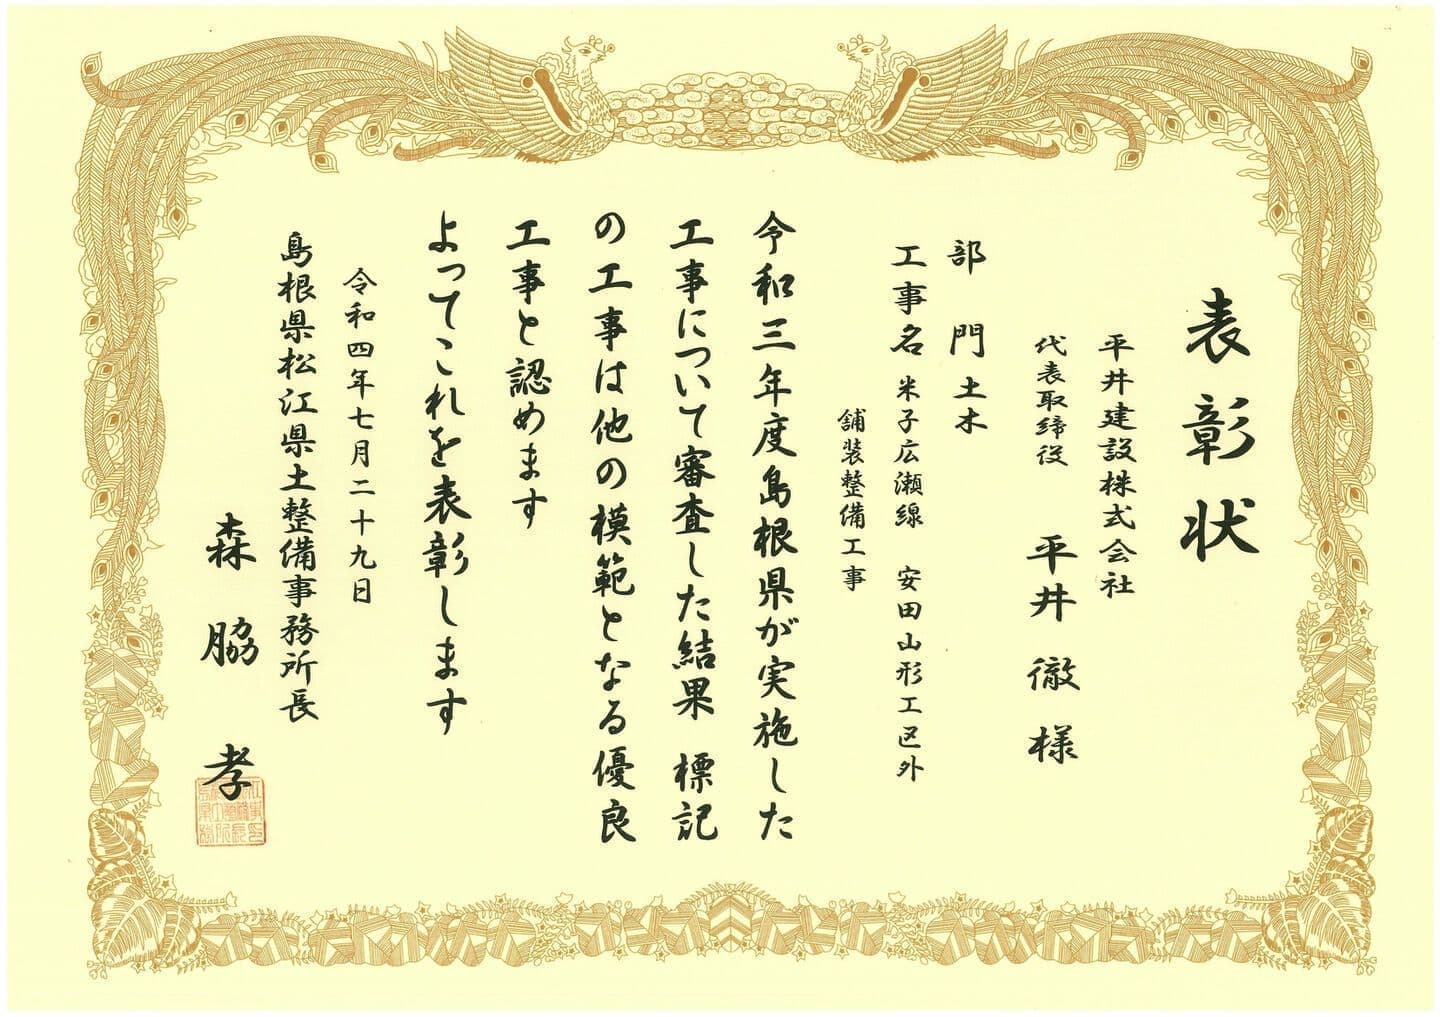 表彰状
平井建設株式会社
代表取締役 平井 徹 様
部門 土木
工事名 米子広瀬線 安田山形工区外
舗装整備工事
令和三年度島根県が実施した
工事について審査した結果 標記
の工事は他の模範となる優良
工事と認めます
よってこれを表彰します
令和四年七月二十九日
島根県松江県土整備事務所長
森脇 孝